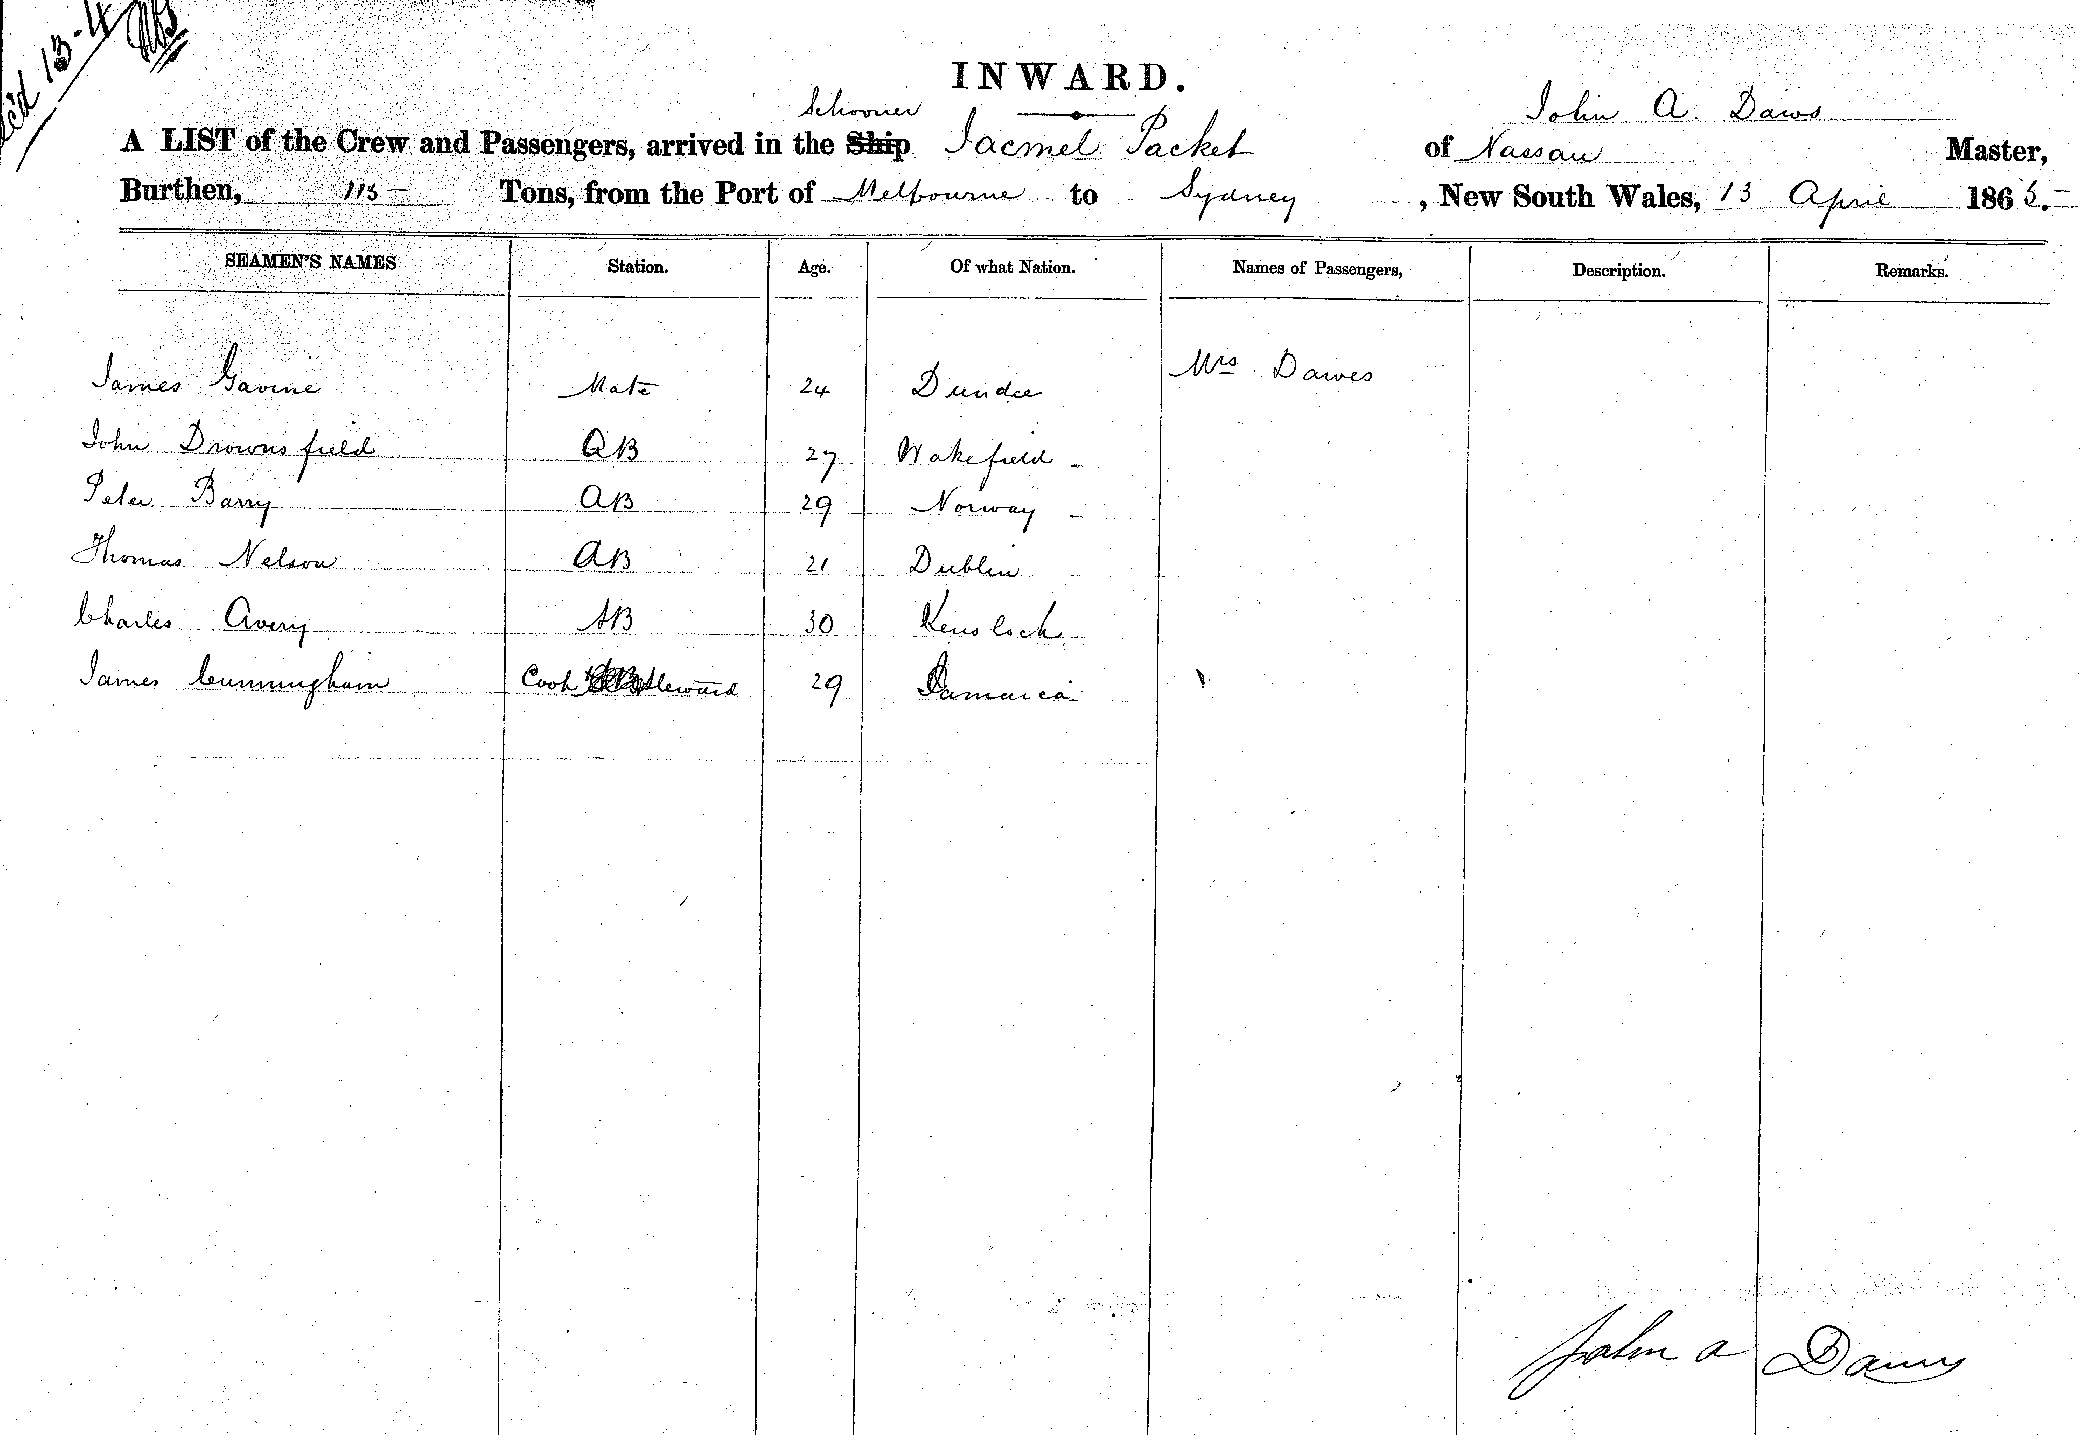 13-4
INWARD.
Schooner
John A. Daws
A LIST of the Crew and Passengers, arrived in the Ship Jacmel Packet of Nassau Master,
Burthen, 113 Tons, from the Port of Melbourne to Sydney, New South Wales, 13 April 1865.
SEAMEN'S NAMES Station. Age. Of what Nation. Names of Passengers, Description. Remarks.
James Gavine Mate 24 Dundee Mrs Dawes
John Drownsfield AB 27 Wakefield
Peter Barry AB 29 Norway
Thomas Nelson AB 21 Dublin
Charles Avery AB 30 
James Cunningham Cook Steward 29 Jamaica
John A Daws